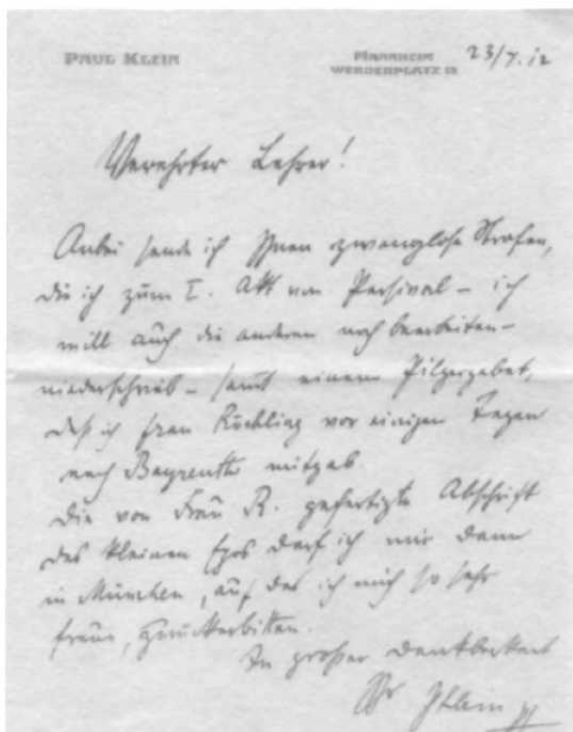 PAUL KLEIN
MANNHEIM 23/7.12
WERDERPLATZ 12
Verehrter Lehrer!
Anbei sende ich Ihnen zwanglose Strofen,
die ich zum I. Akt von Parsival – ich
will auch die anderen noch bearbeiten –
niederschrieb – samt einem Pilgergebet,
das ich Frau Röchling vor einigen Tagen
nach Bayreuth mitgab.
Die von Frau R. gefertigte Abschrift
des kleinen Epos darf ich mir dann
in München, auf das ich mich so sehr
freue, zurückerbitten.
In großer Dankbarkeit
Ihr PKlein